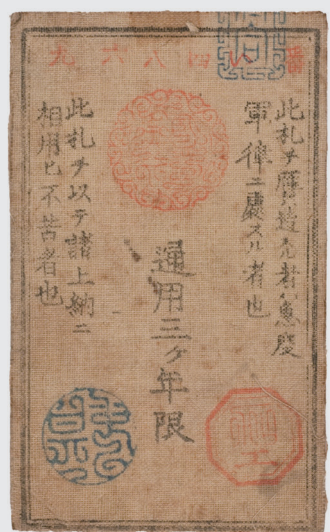 此札ヲ贋造スル者ハ急度
軍律ニ處スル者也
通用三ヶ年限
此札ヲ以テ諸上納ニ
相用ヒ不苦者也